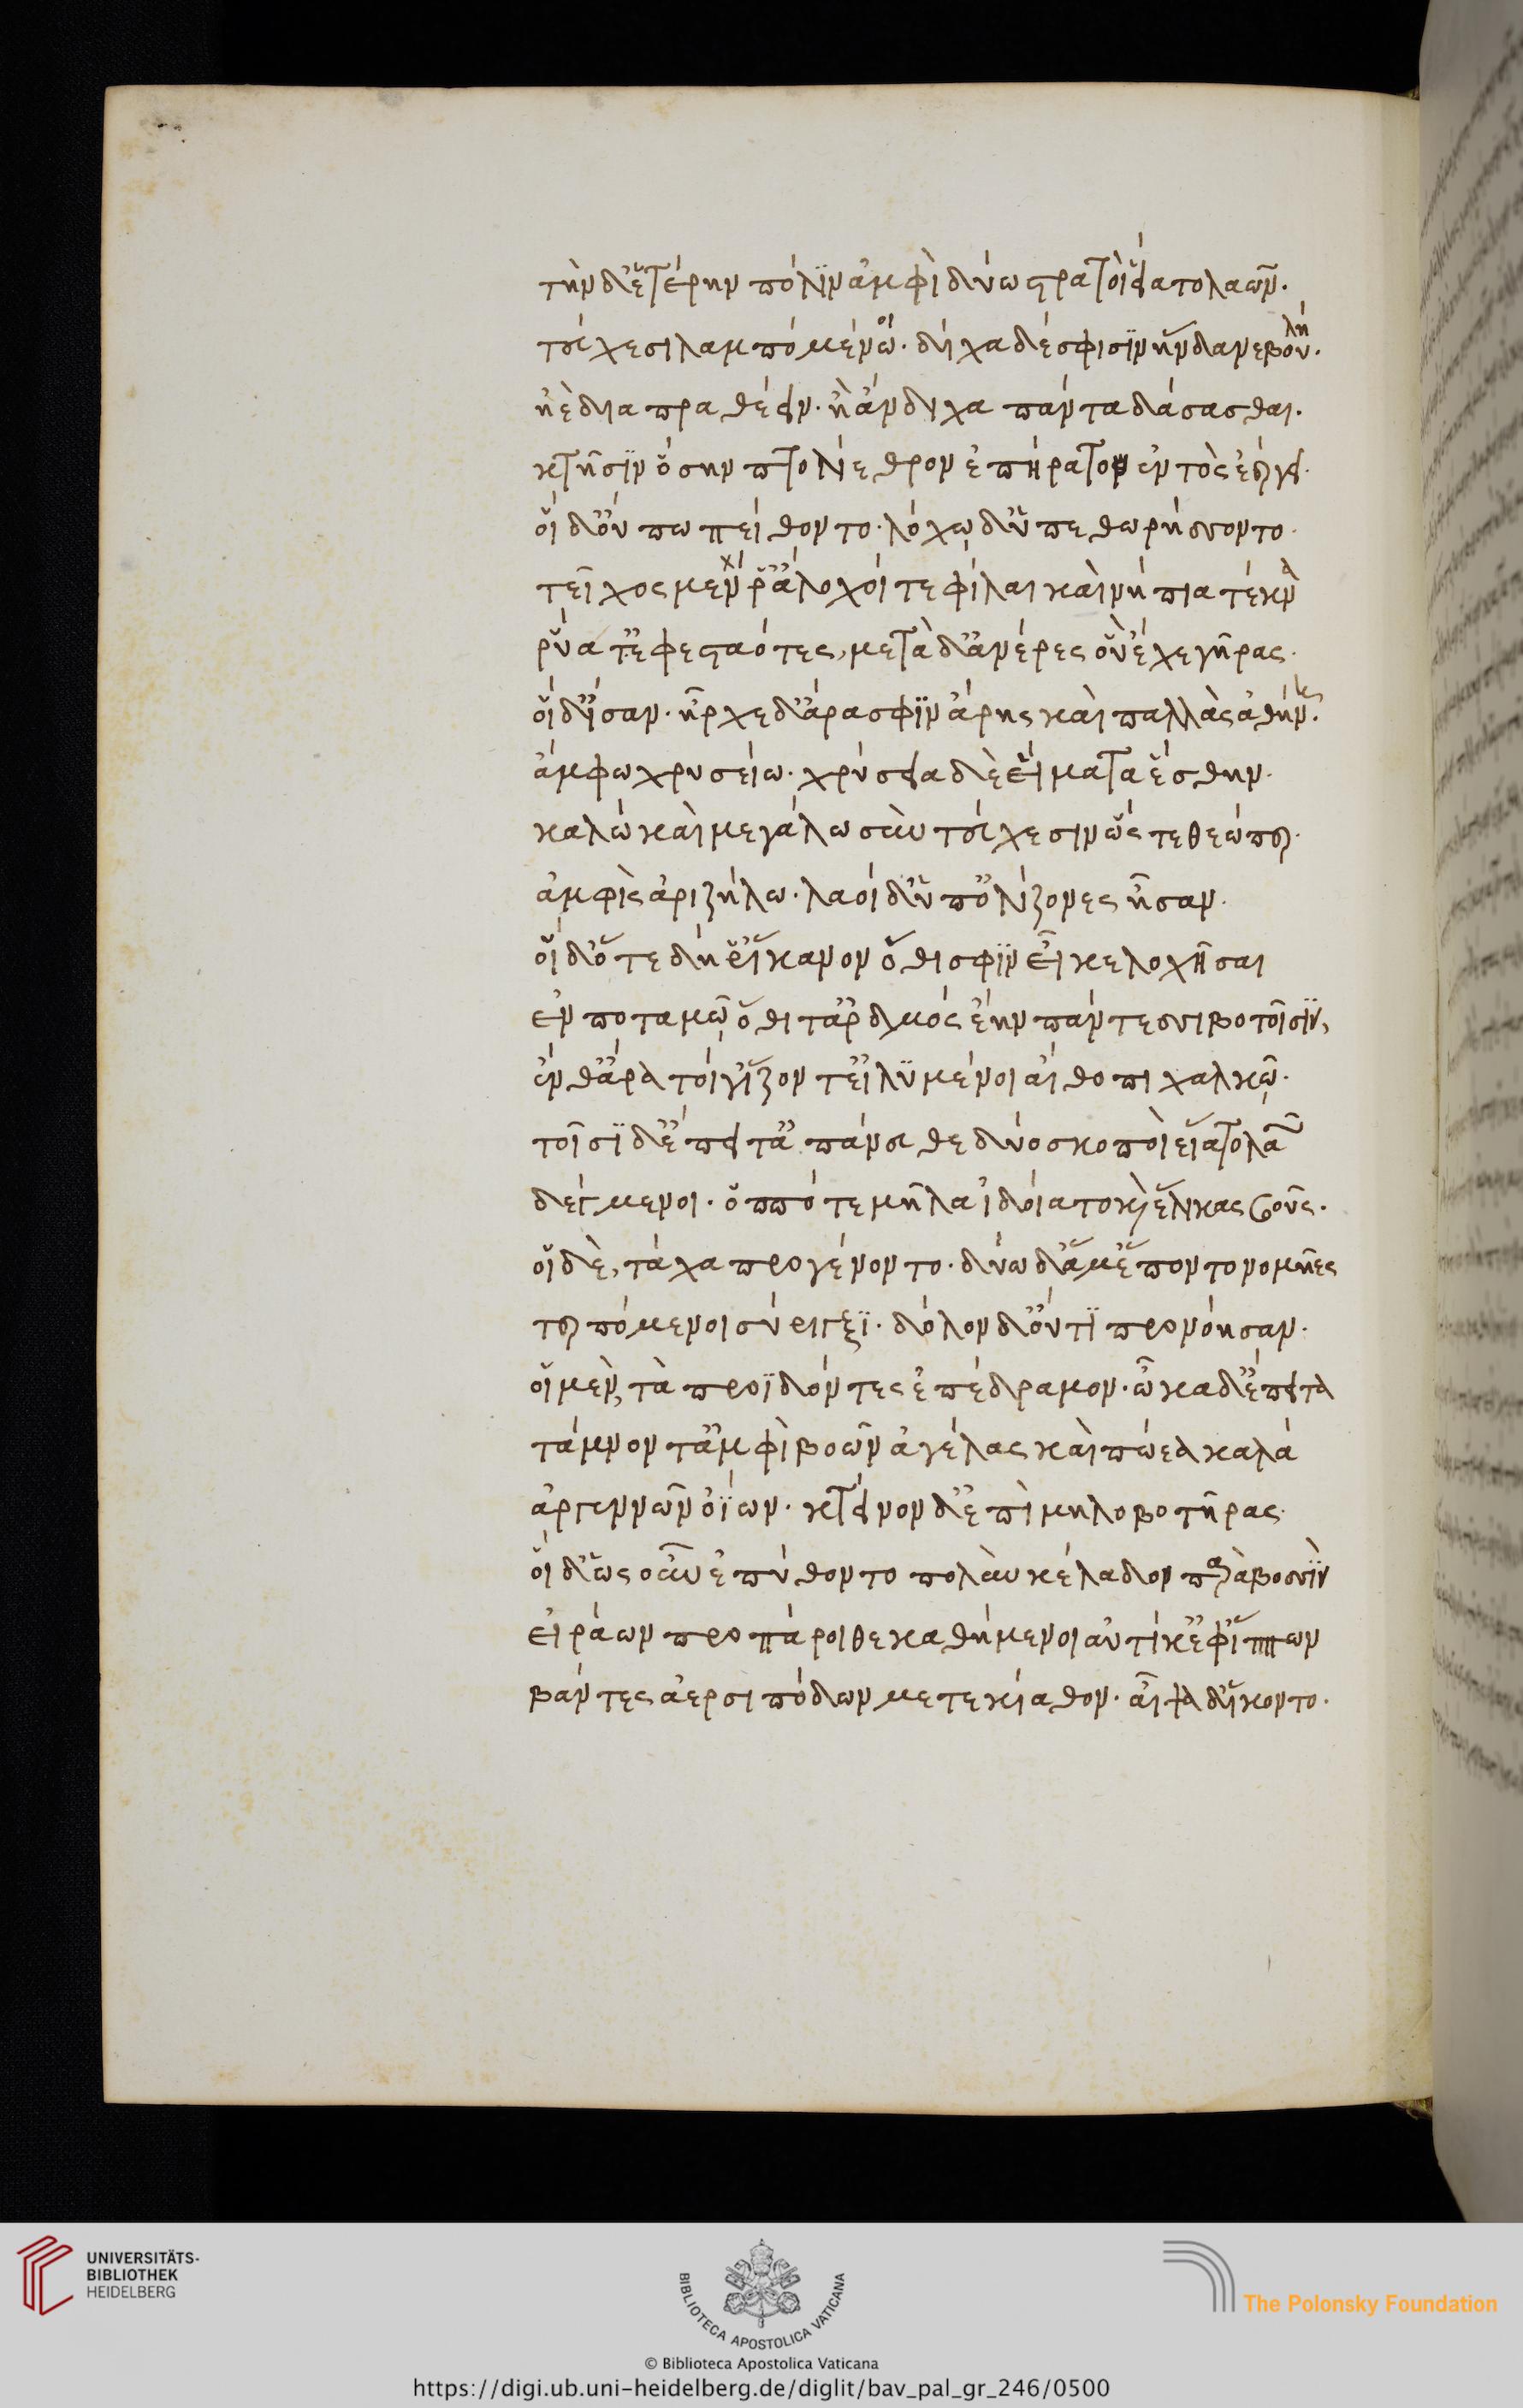 τὴν δ' ἑτέρην πόλιν ἀμφὶ δύω στρατοὶ εἵατο λαῶν.
τεύχεσι λαμπόμενοι. δίχα δέ σφισιν ἥνδανε βουλή.
ἠὲ διαπραθέειν. ἢ ἄνδιχα πάντα δάσασθαι.
κτῆσιν ὅσην πτολίεθρον ἐπήρατον ἐντὸς ἐέργει.
οἱ δ' οὔπω πείθοντο. λόχῳ δ' ὑπεθωρήσσοντο.
τεῖχος μέν ῥ' ἄλοχοί τε φίλαι καὶ νήπια τέκνα
ῥύατ' ἐφεσταότες, μετὰ δ' ἀνέρες οὓς ἔχε γῆρας.
οἱ δ' ἴσαν. ἦρχε δ' ἄρα σφιν ἄρης καὶ παλλὰς ἀθήνη.
ἄμφω χρυσείω. χρύσεια δὲ εἵματα ἕσθην.
καλὼ καὶ μεγάλω σὺν τεύχεσιν ὥς τε θεώ περ.
ἀμφὶς ἀριζήλω. λαοὶ δ' ὑπολίζονες ἦσαν.
οἱ δ' ὅτε δή ῥ' ἵκανον ὅθι σφιν εἶκε λοχῆσαι
ἐν ποταμῷ ὅθι τ' ἀρδμὸς ἔην πάντεσσι βοτοῖσιν,
ἔνθ' ἄρα τοί γ' ἵζοντ' εἰλυμένοι αἴθοπι χαλκῷ.
τοῖσι δ' ἔπειτ' ἀπάνευθε δύο σκοποὶ εἵατο λαῶν
δέγμενοι. ὁππότε μῆλα ἰδοίατο καὶ ἕλικας βοῦς.
οἱ δὲ, τάχα προγένοντο. δύω δ' ἅμ' ἕποντο νομῆες
τερπόμενοι σύριγξι. δόλον δ' οὔτι προνόησαν.
οἱ μὲν, τὰ προϊδόντες ἐπέδραμον. ὦκα δ' ἔπειτα
τάμνοντ' ἀμφὶ βοῶν ἀγέλας καὶ πώεα καλά
ἀργεννῶν ὀΐων. κτεῖνον δ' ἐπὶ μηλοβοτῆρας.
οἱ δ' ὡς οὖν ἐπύθοντο πολὺν κέλαδον παρὰ βουσὶν
εἰράων προπάροιθε καθήμενοι αὐτίκ' ἐφ' ἵππων
βάντες ἀερσιπόδων μετεκίαθον. αἶψα δ' ἵκοντο.
UNIVERSITÄTS-
BIBLIOTHEK
HEIDELBERG
BIBLIOTECA APOSTOLICA VATICANA
The Polonsky Foundation
© Biblioteca Apostolica Vaticana
https://digi.ub.uni-heidelberg.de/diglit/bav_pal_gr_246/0500